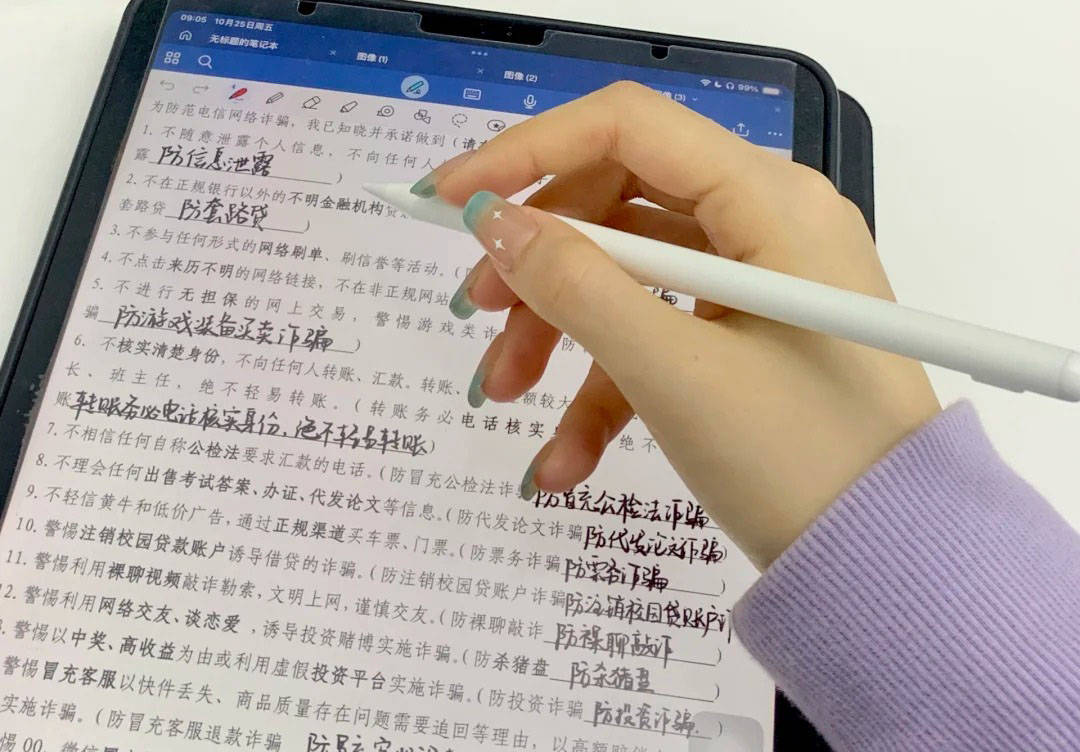 09:05 10月25日周五
99%
无标题的笔记本
图像 (1)
图像 (2)
(3)
为防范电信网络诈骗，我已知晓并承诺做到（请
1. 不随意泄露个人信息，不向任何人
露 防信息泄露 ）
2. 不在正规银行以外的不明金融机构贷
套路贷 防套路贷 ）
3. 不参与任何形式的网络刷单、刷信誉等活动。（
4. 不点击来历不明的网络链接，不在非正规网站 骗
5. 不进行无担保的网上交易，警惕游戏类诈 防
骗 防游戏装备买卖诈骗 ）
6. 不核实清楚身份，不向任何人转账、汇款。转账、 额较大
长、班主任，绝不轻易转账。（转账务必电话核实身 绝不
账 转账务必电话核实身份，绝不轻易转账）
7. 不相信任何自称公检法要求汇款的电话。（防冒充公检法诈骗 防冒充公检法诈骗
8. 不理会任何出售考试答案、办证、代发论文等信息。（防代发论文诈骗 防代发论文诈骗）
9. 不轻信黄牛和低价广告，通过正规渠道买车票、门票。（防票务诈骗 防票务诈骗 ）
10. 警惕注销校园贷款账户诱导借贷的诈骗。（防注销校园贷账户诈骗 防注销校园贷账户诈
11. 警惕利用裸聊视频敲诈勒索，文明上网，谨慎交友。（防裸聊敲诈 防裸聊敲诈 ）
2. 警惕利用网络交友、谈恋爱，诱导投资赌博实施诈骗。（防杀猪盘 防杀猪盘 ）
. 警惕以中奖、高收益为由或利用虚假投资平台实施诈骗。（防投资诈骗 防投资诈骗 ）
警惕冒充客服以快件丢失、商品质量存在问题需要追回等理由，以高额赔
实施诈骗。（防冒充客服退款诈骗